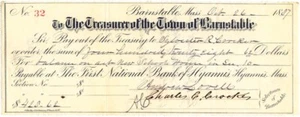 No. 32 Barnstable, Mass Oct 26 1887
To The Treasurer of the Town of Barnstable
Sir Pay out of the Treasury to Sylvester R.
or order the sum of four hundred twenty eight 62 Dollars
For balance on New School House in Dis. 10
Payable at The First National Bank of Hyannis, Hyannis, Mass.
Section No. 8 Andrew Lovell
$428.62 Charles C. Crocker